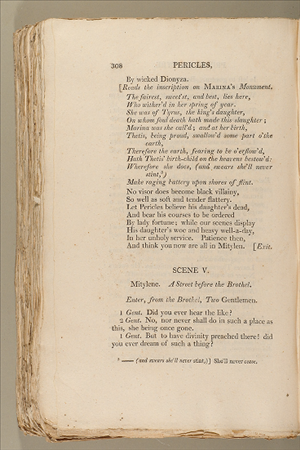 308 PERICLES,
By wicked Dionyza.
[Reads the inscription on MARINA's Monument.
The fairest, sweet'st, and best, lies here,
Who wither'd in her spring of year.
She was of Tyrus, the king's daughter,
On whom foul death hath made this slaughter;
Marina was she call'd; and at her birth,
Thetis, being proud, swallow'd some part o'the
earth,
Therefore the earth, fearing to be o'erflow'd,
Hath Thetis' birth-child on the heavens bestow'd:
Wherefore she does, (and swears she'll never
stint,)
Make raging battery upon shores of flint.
No visor does become black villainy,
So well as soft and tender flattery.
Let Pericles believe his daughter's dead,
And bear his courses to be ordered
By lady fortune; while our scenes display
His daughter's woe and heavy well-a-day,
In her unholy service. Patience then,
And think you now are all in Mitylen. [Exit.
SCENE V.
Mitylene. A Street before the Brothel.
Enter, from the Brothel, Two Gentlemen.
1 Gent. Did you ever hear the like?
2 Gent. No, nor never shall do in such a place as
this, she being once gone.
1 Gent. But to have divinity preached there! did
you ever dream of such a thing?
—— (and swears she'll never stint,)] She'll never cease.